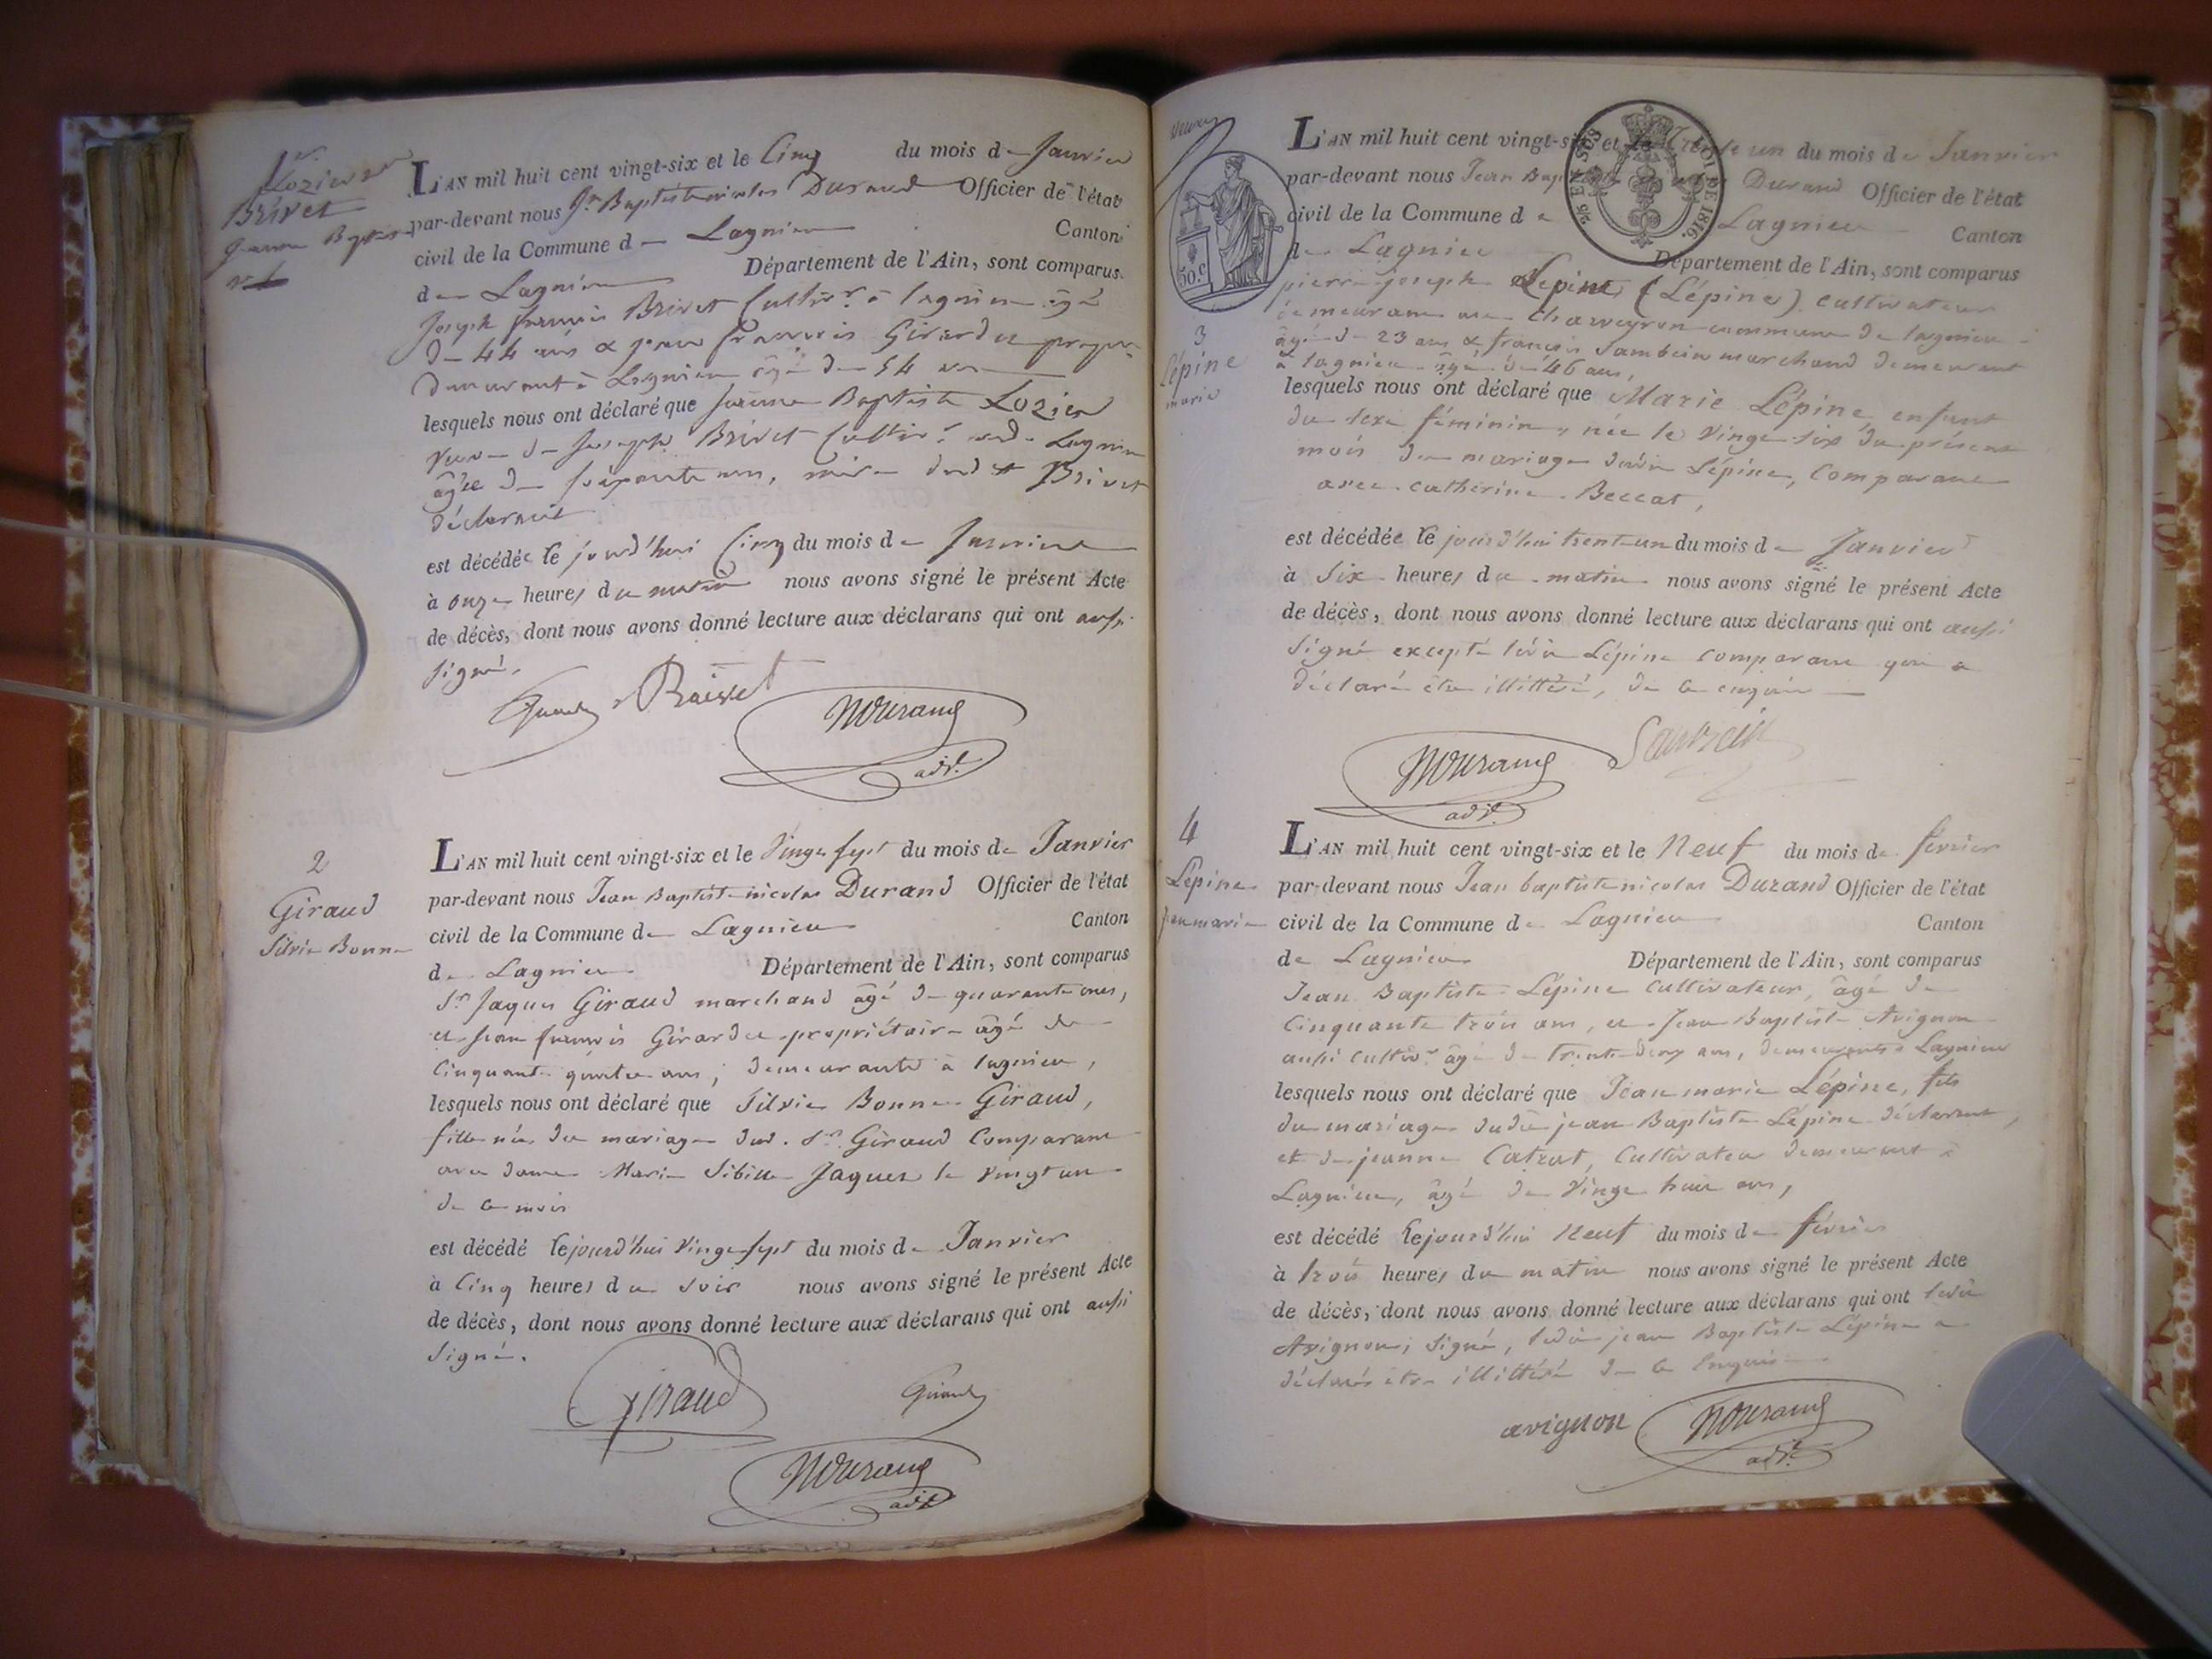 Lozier
Brivet
Jeanne Baptiste
n 1
L'AN mil huit cent vingt-six et le Cinq du mois de Janvier
par-devant nous Jn Baptiste nicolas Durand Officier de l'état
civil de la Commune de Lagnieu Canton
de Lagnieu Département de l'Ain, sont comparus
Joseph francois Brivet Cultivr à lagnieu âgé
de 44 ans & jean francois Girardet propre
demeurant à Lagnieu âgé de 54 ans
lesquels nous ont déclaré que Jeanne Baptiste Lozier
veuve de Joseph Brivet Cultivr Lagnieu
âgée de soixante ans, mère dudt Brivet
déclarant
est décédée le jourd'hui Cinq du mois de Janvier
à onze heures du matin nous avons signé le présent Acte
de décès, dont nous avons donné lecture aux déclarans qui ont aussi
signé.
NDurand
adjt
2
Giraud
Silvie Bonne
L'AN mil huit cent vingt-six et le Vingt sept du mois de Janvier
par-devant nous Jean Baptiste nicolas Durand Officier de l'état
civil de la Commune de Lagnieu Canton
de Lagnieu Département de l'Ain, sont comparus
Sr Jaques Giraud marchand âgé de quarante ans,
et jean francois Girardet propriétaire âgé de
Cinquante quatre ans, demeurants à lagnieu,
lesquels nous ont déclaré que Silvie Bonne Giraud,
fille née du mariage dud. Sr Giraud Comparant
avec dame Marie Sibille Jaques le vingt un
de ce mois
est décédé le jourd'hui Vingt sept du mois de Janvier
à Cinq heures du soir nous avons signé le présent Acte
de décès, dont nous avons donné lecture aux déclarans qui ont aussi
signé.
Giraud
NDurand
adjt
EN SUS
LOI DE 1816.
50.c
3
Lépine
marie
L'AN mil huit cent vingt-six et le Trente un du mois de Janvier
par-devant nous Jean Bap Durand Officier de l'état
civil de la Commune de Lagnieu Canton
de Lagnieu Département de l'Ain, sont comparus
pierre joseph Lepine (Lépine) cultivateur
demeurant au Charveyron commune de lagnieu
âgé de 23 ans & françois Sambein marchand demeurant
à lagnieu âgé de 46 ans,
lesquels nous ont déclaré que Marie Lépine, enfant
du sexe féminin, née le vingt six du présent
mois du mariage dudit Lépine, comparant
avec catherine Beccat,
est décédée le jourd'hui trente un du mois de Janvier
à Six heures du matin nous avons signé le présent Acte
de décès, dont nous avons donné lecture aux déclarans qui ont aussi
signé excepté ledit Lépine comparant qui a
déclaré être illittéré, de ce enquis
NDurand
adjt
4
Lépine
jean marie
L'AN mil huit cent vingt-six et le Neuf du mois de février
par-devant nous Jean baptiste nicolas Durand Officier de l'état
civil de la Commune de Lagnieu Canton
de Lagnieu Département de l'Ain, sont comparus
Jean Baptiste Lépine cultivateur, âgé de
Cinquante trois ans, et Jean Baptiste Avignon
aussi cultivr âgé de trente deux ans, demeurants à Lagnieu
lesquels nous ont déclaré que Jean marie Lépine, fils
du mariage dudit jean Baptiste Lépine déclarant,
et de jeanne Catrat, Cultivateur demeurant à
Lagnieu, âgé de Vingt huit ans,
est décédé le jourd'hui Neuf du mois de février
à trois heures du matin nous avons signé le présent Acte
de décès, dont nous avons donné lecture aux déclarans qui ont ledit
Avignon, signé, ledit jean Baptiste Lépine a
déclaré être illittéré de ce Enquis
avignon NDurand
adjt